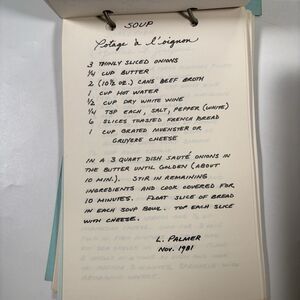 SOUP
Potage à l'oignon
3 THINLY SLICED ONIONS
1/4 CUP BUTTER
2 (10½ OZ.) CANS BEEF BROTH
1 CUP HOT WATER
½ CUP DRY WHITE WINE
¼ TSP EACH, SALT, PEPPER (WHITE)
6 SLICES TOASTED FRENCH BREAD
1 CUP GRATED MUENSTER OR
GRUYERE CHEESE
IN A 3 QUART DISH SAUTÉ ONIONS IN
THE BUTTER UNTIL GOLDEN (ABOUT
10 MIN.). STIR IN REMAINING
INGREDIENTS AND COOK COVERED FOR
10 MINUTES. FLOAT SLICE OF BREAD
IN EACH SOUP BOWL. TOP EACH SLICE
WITH CHEESE.
L. PALMER
NOV. 1981